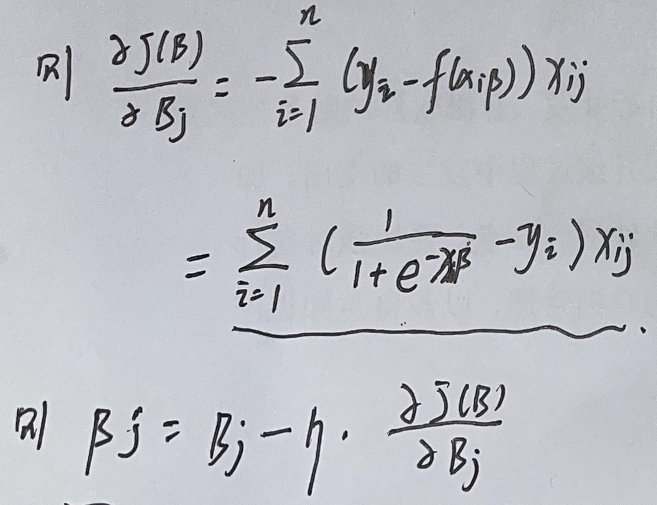 则 ∂J(β)/∂βj = -∑_{i=1}^{n} (yi - f(xiβ)) xij
= ∑_{i=1}^{n} (1/(1+e^{-xiβ}) - yi) xij .
则 βj = βj - η · ∂J(β)/∂βj